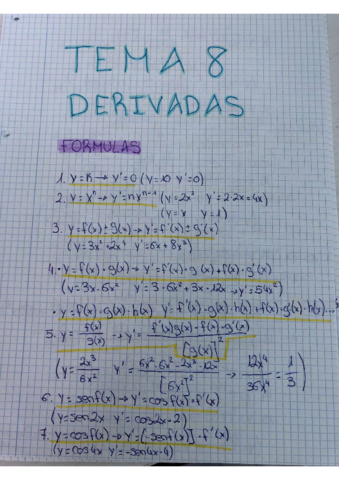 TEMA 8
DERIVADAS
FORMULAS
1. y=K → y'=0 (y=10 y'=0)
2. y=xⁿ → y'=nxⁿ⁻¹ (y=2x² y'=2·2x=4x)
(y=x y=1)
3. y=f(x)±g(x) → y'=f'(x)±g'(x)
(y=3x²+2x⁴ y'=6x+8x³)
4.· y=f(x)·g(x) → y'=f'(x)·g(x)+f(x)·g'(x)
(y=3x·6x² y'=3·6x²+3x·12x → y'=54x²)
· y=f(x)·g(x)·h(x) y'=f'(x)·g(x)·h(x)+f(x)·g'(x)·h(x)...
5. y=f(x)/g(x) → y'=f'(x)g(x)-f(x)·g'(x)/[g(x)]²
(y=2x³/6x² y'=6x²·6x²-2x³·12x/[6x²]² → 12x⁴/36x⁴=1/3)
6. y=senf(x) → y'=cosf(x)·f'(x)
(y=sen2x y'=cos2x·2)
7. y=cosf(x) → y'=[-senf(x)]·f'(x)
(y=cos4x y'=-sen4x·4)